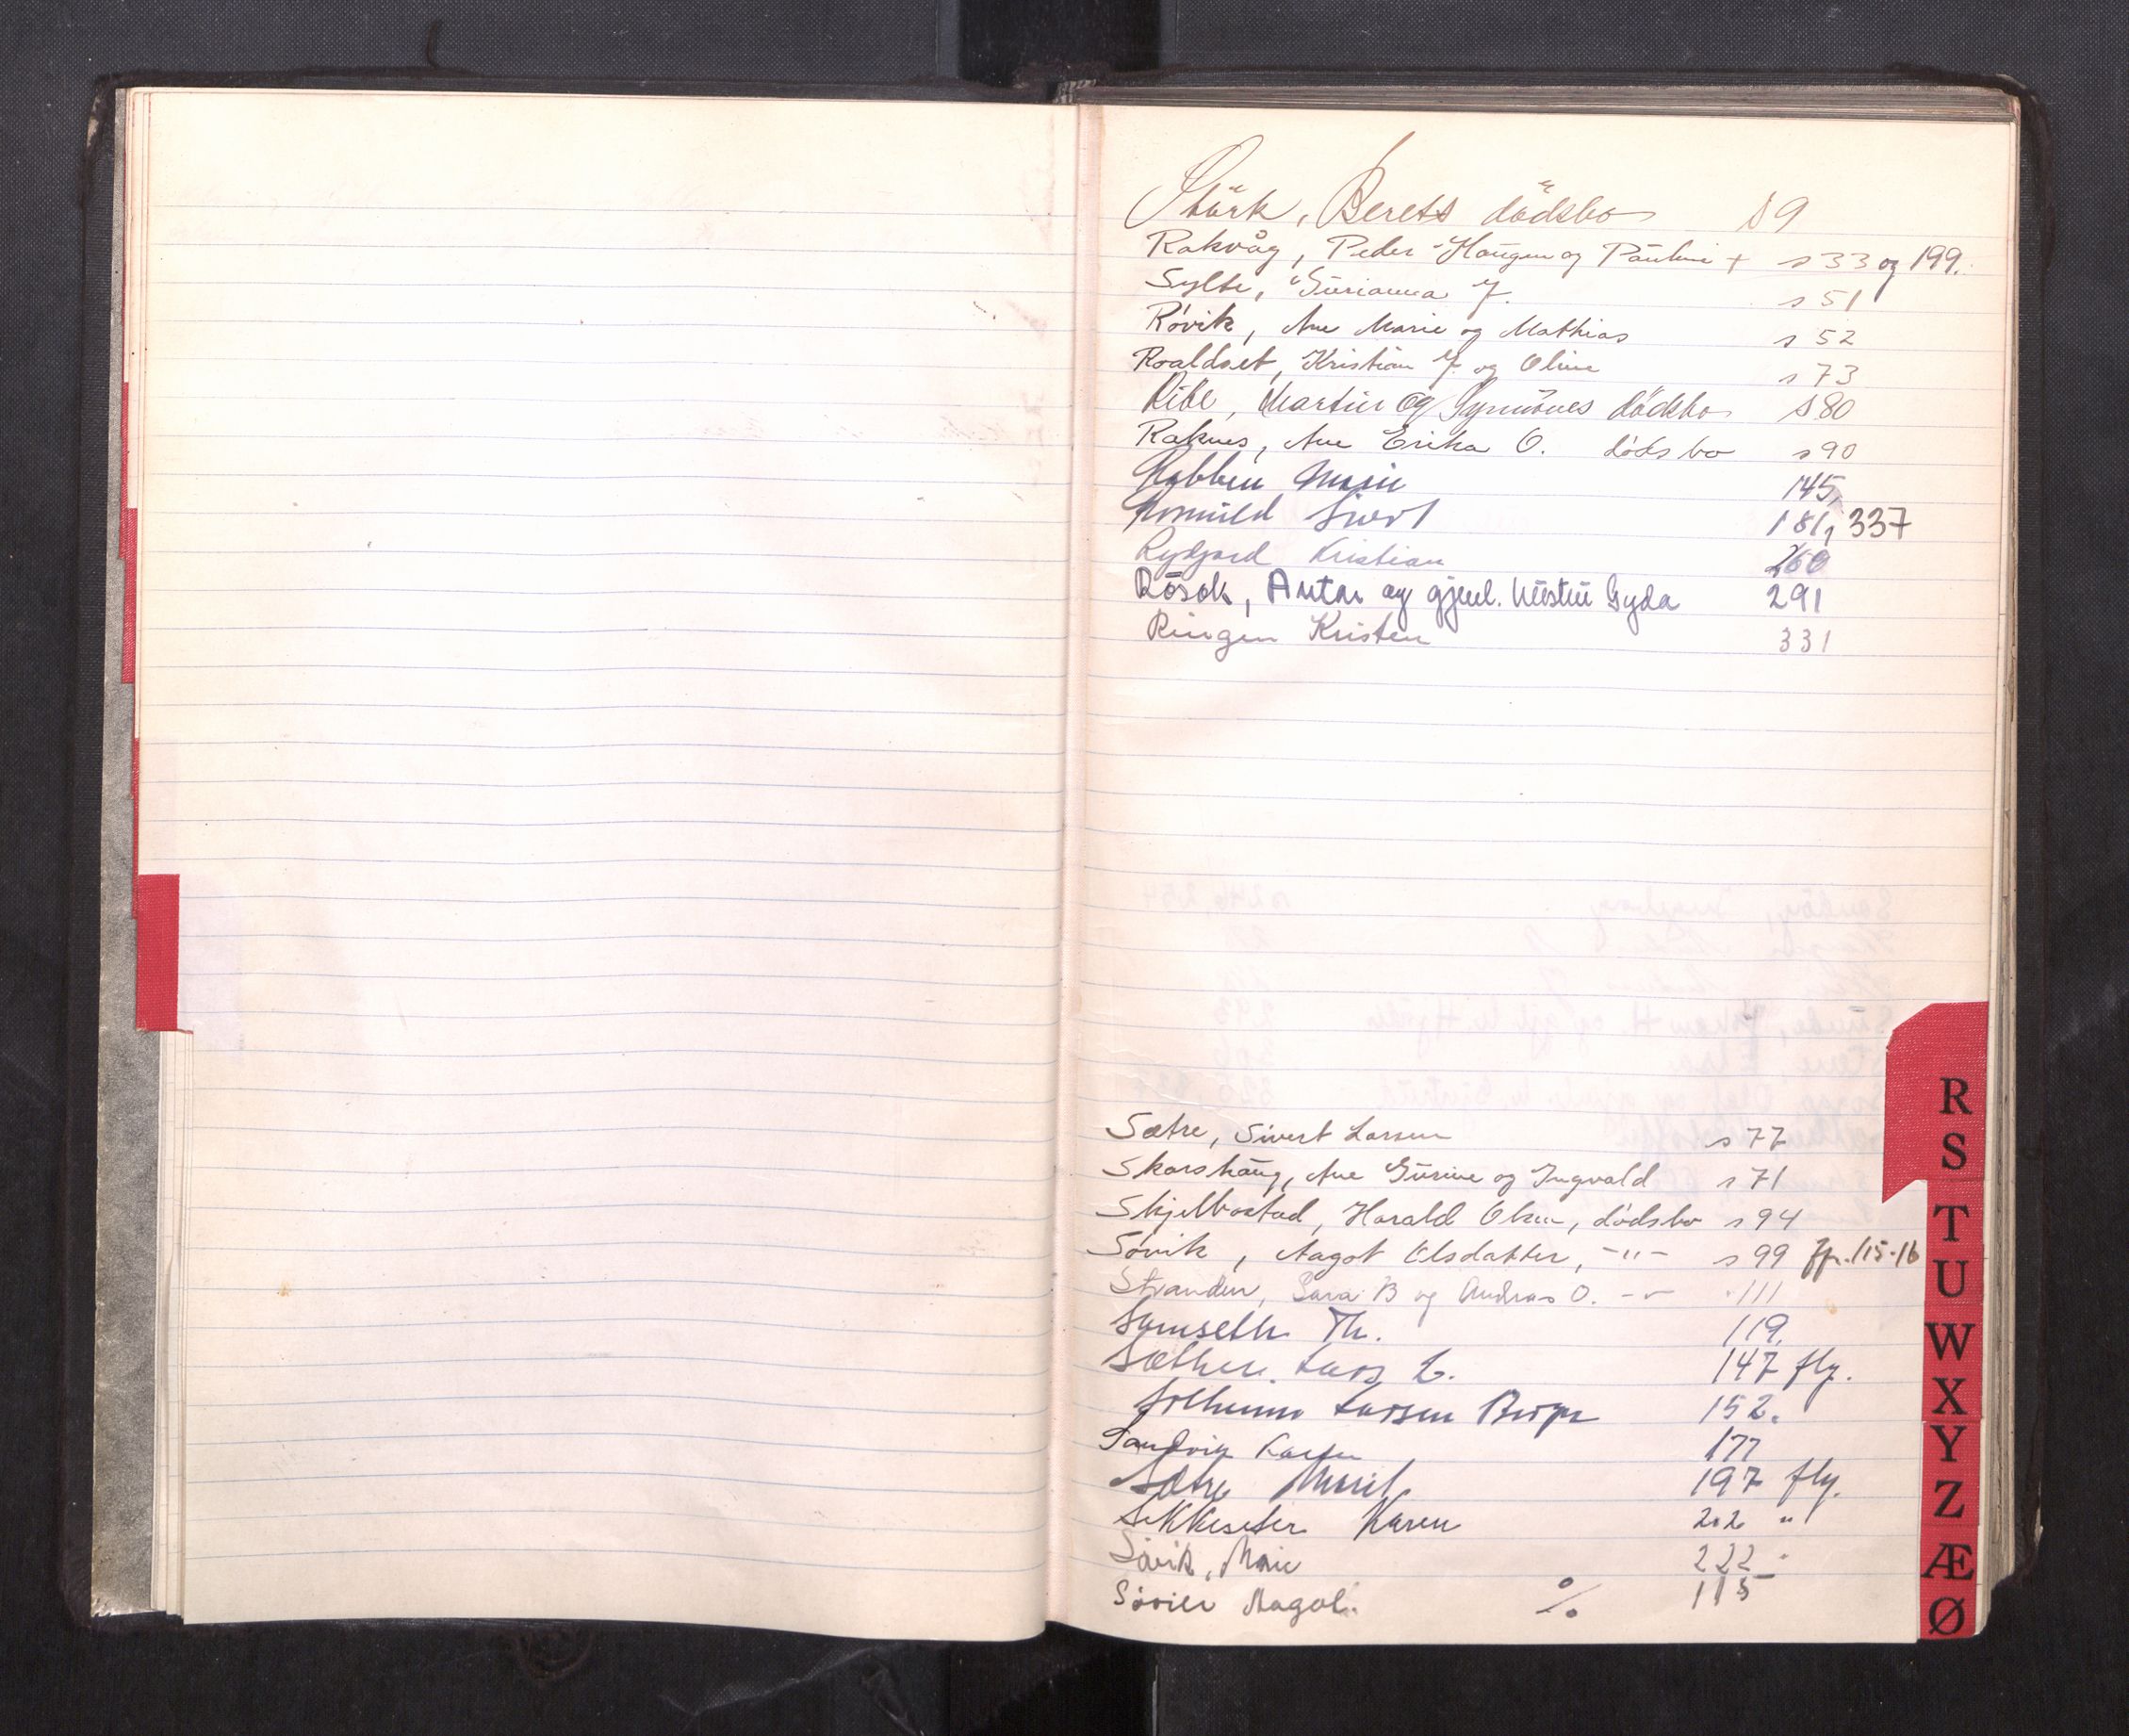 Stürk, Berets dödsbo s 9
Rakvåg, Peder Haugen og Pauline + s 33 og 199.
Sylte, Gurianna J. s 51
Røvik, Ane Marie og Mathias s 52
Roaldset, Kristian J. og Oline s 73
Ribe, Martin og dödsbo s 80
Raknes, Ane Erika O. dødsbo s 90
Marie 145,
Sivert 181, 337
Rydjord Kristian 260
Rösok, Anton og gjenl. hustru Gyda 291
Ringen Kristen 331
Sætre, Sivert Larsen s 77
Skarshaug, Ane Gurine og Ingvald s 71
Skjelbostad, Harald Olsen, dødsbo s 94
Søvik, Aagot Olsdatter, -"- s 99 fp. 115-16
Stranden, Sara B og Andreas O. 111
Samseth Th. 119.
Sæther. Lars L. 147 flg.
Solheim Larsen 152.
Sandvik Karsten 177
Sætre Marit 197 flg.
Sekkeseter Karen 202 "
Søvik, Marie 222
Søvik Aagot. % 115
R
S
T
U
W
X
Y
Z
Æ
Ø